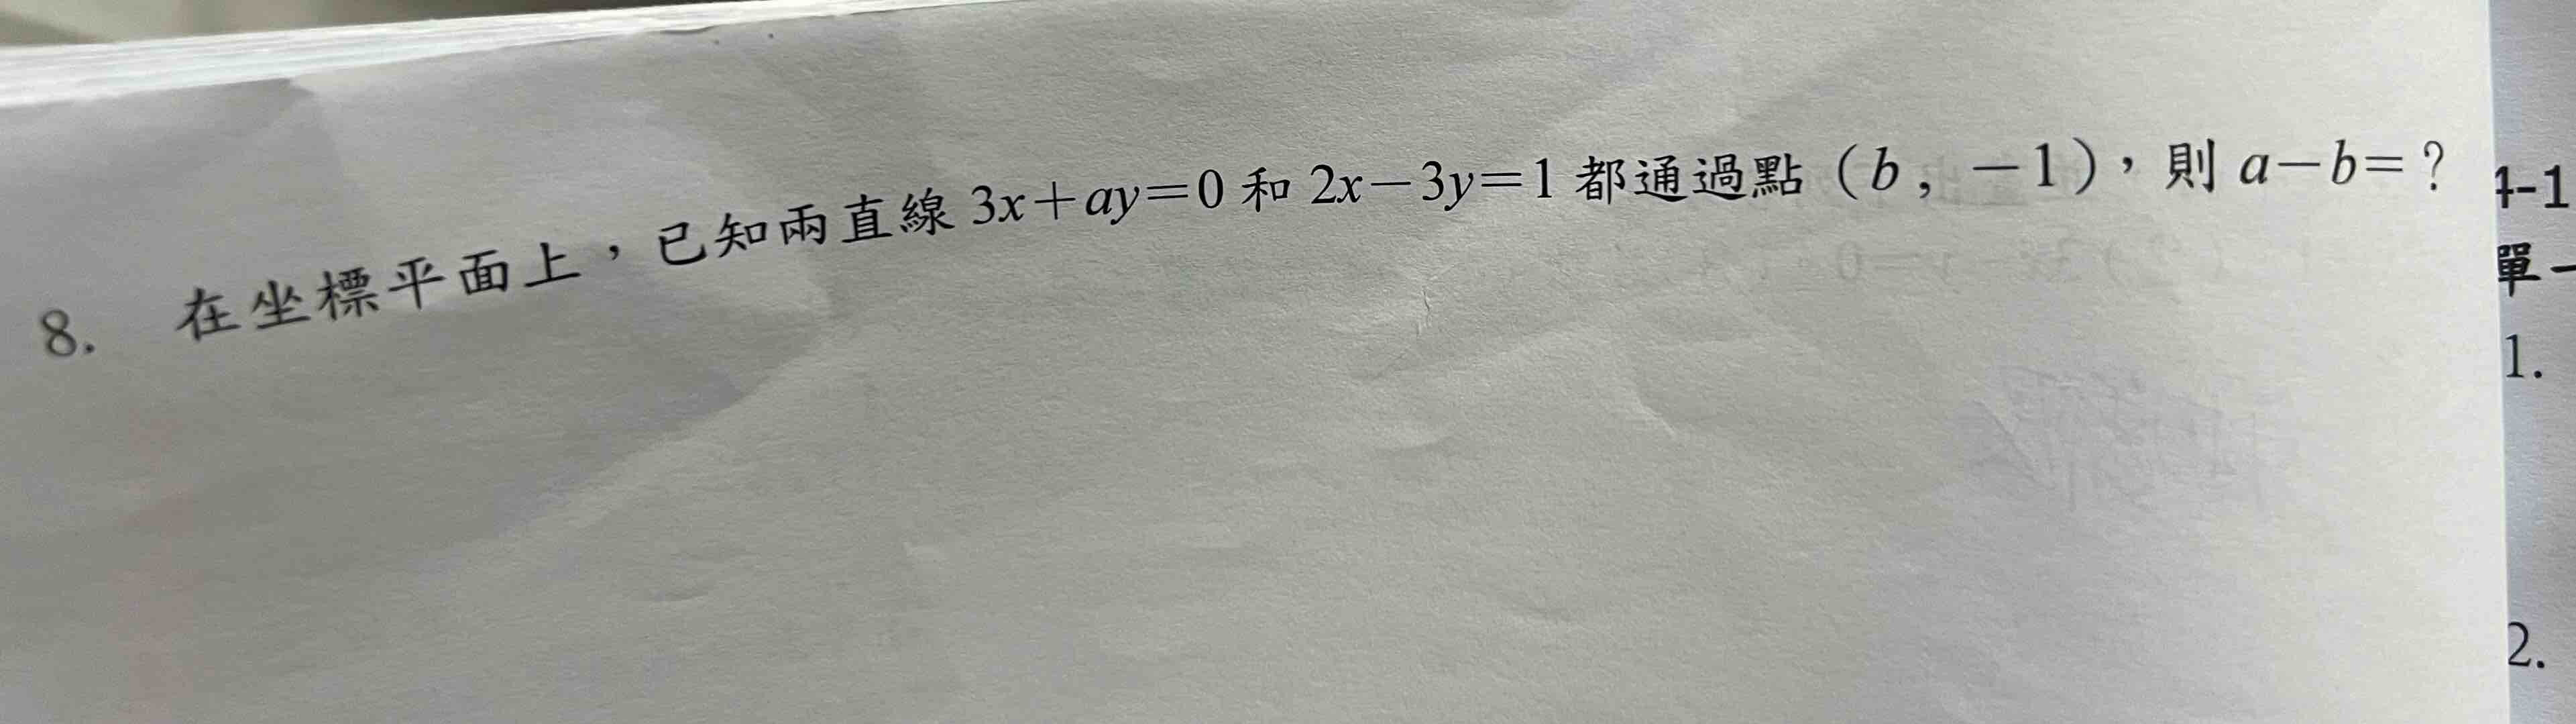 8. 在坐標平面上，已知兩直線 3x＋ay＝0 和 2x－3y＝1 都通過點（b，－1），則 a－b＝？
4-1
單一
1.
2.